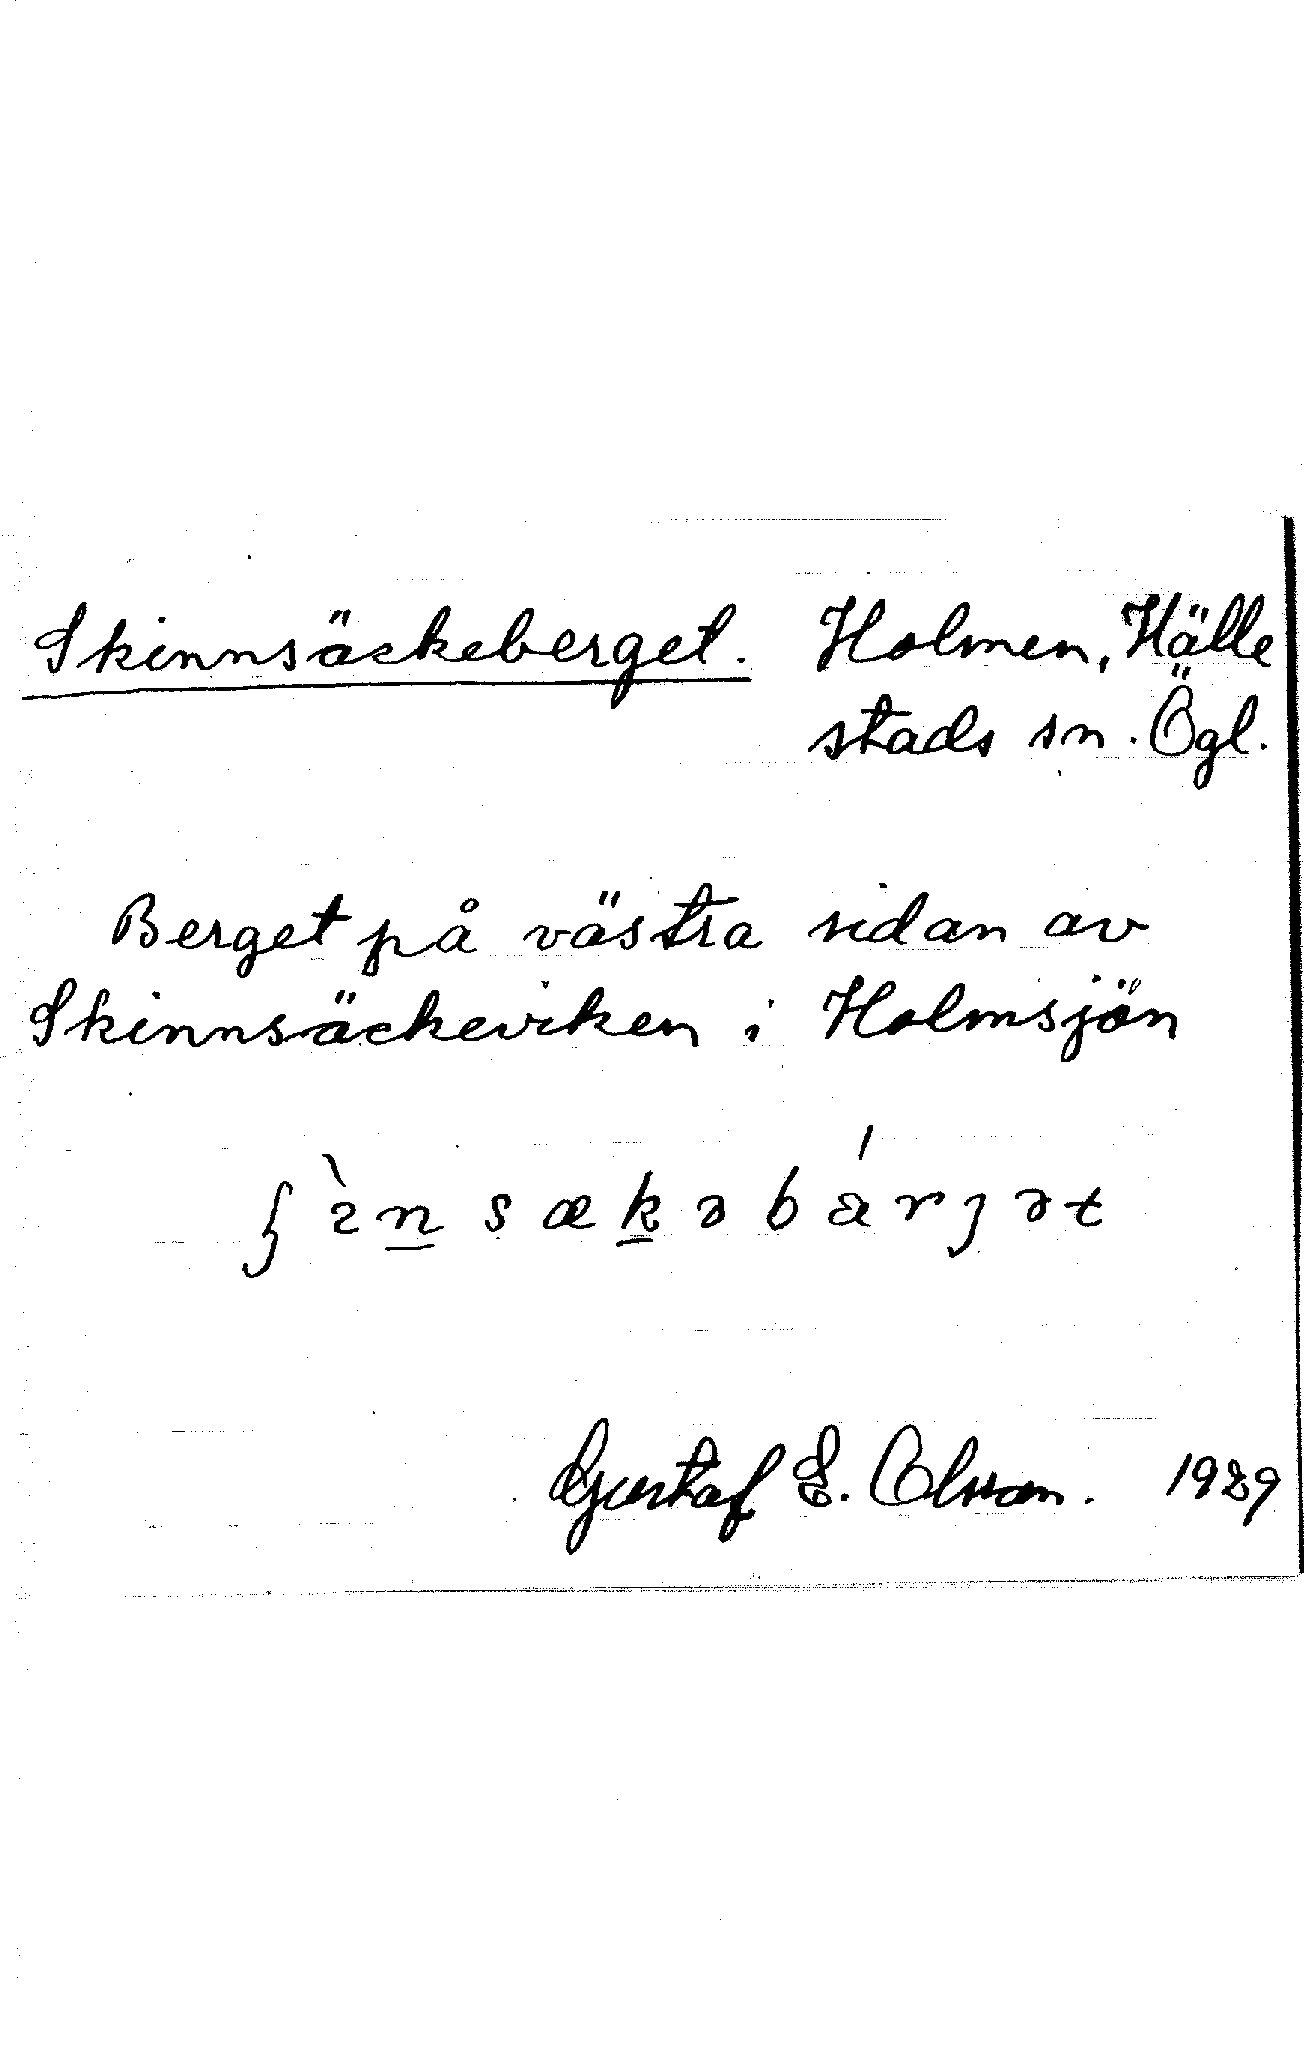 Skinnsäckeberget. Holmen, Hälle
stads sn. Ögl.
Berget på västra sidan av
Skinnsäckeviken i Holmsjön
ʃ̀ɪn̲sæk̲əbárȷət
Gustaf E. Olsson. 1929